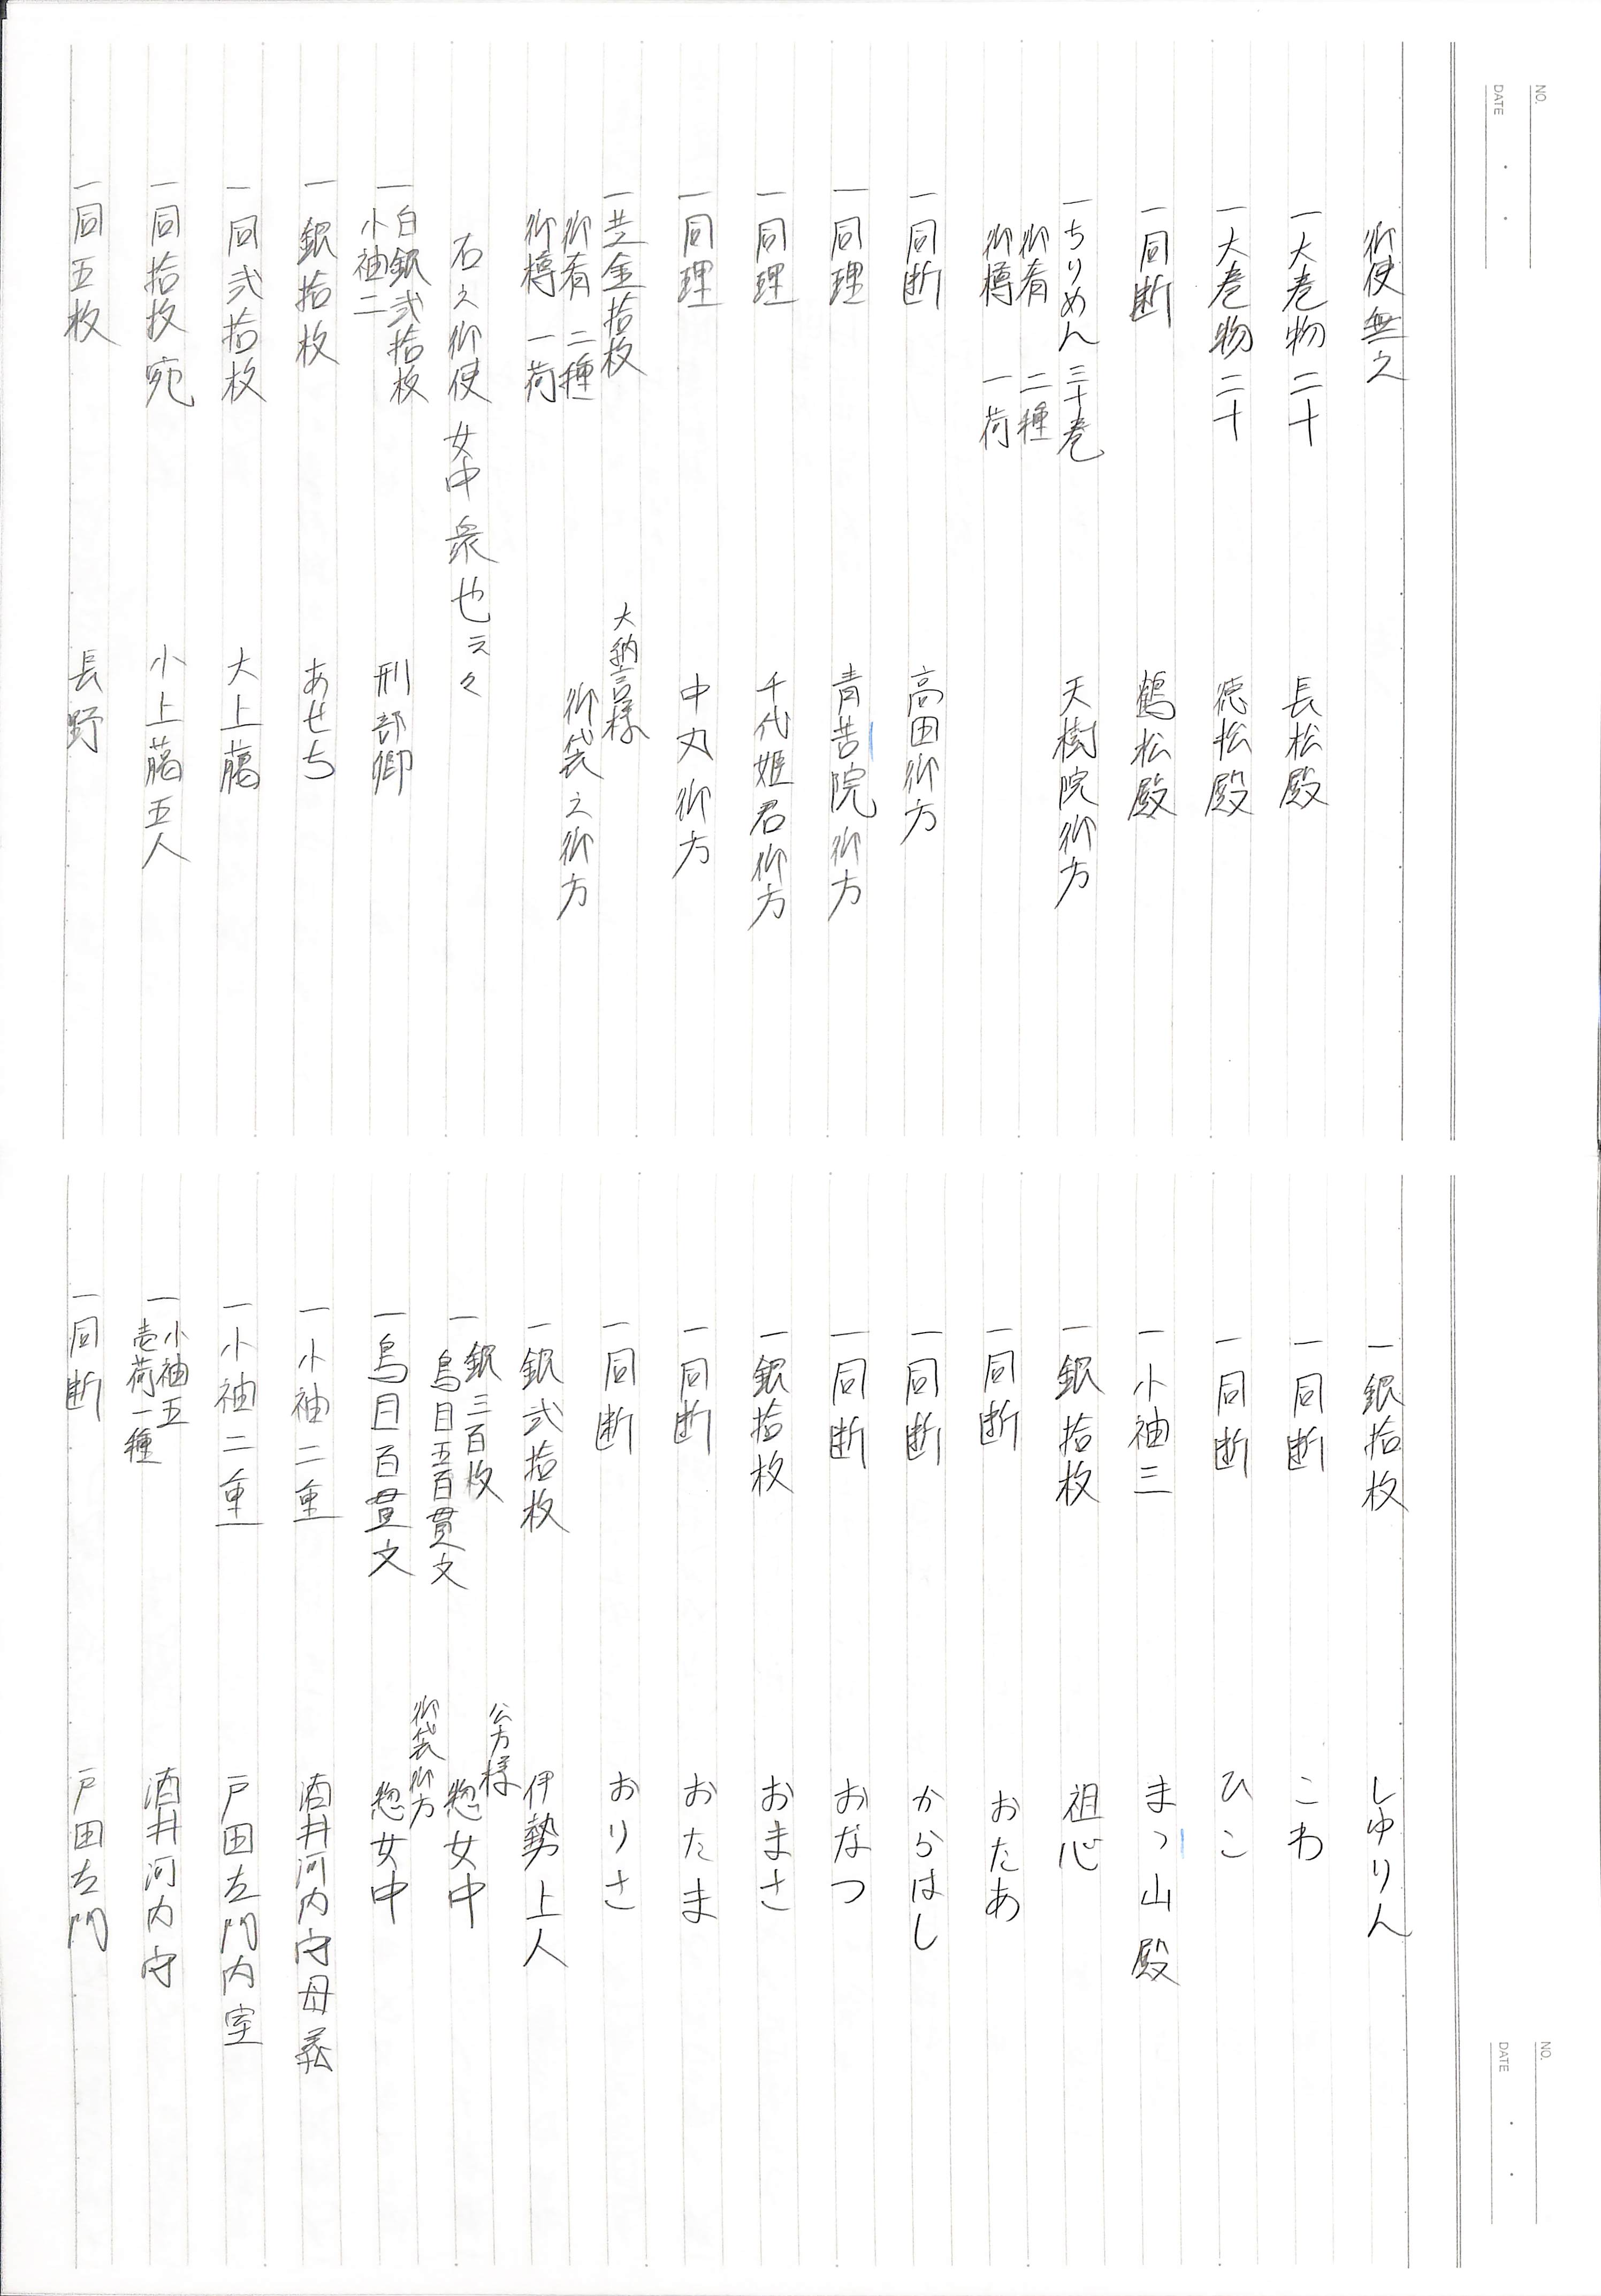 御使無之
一大巻物 二十 長松殿
一大巻物 二十 徳松殿
一同断 鶴松殿
一ちりめん 三十巻 天樹院御方
御肴 二種
御樽 一荷
一同断 高田御方
一同理 青苔院御方
一同理 千代姫君御方
一同理 中丸御方
一芝金拾枚 大納言様
御肴 二種 御袋之御方
御樽 一荷
右之御使女中衆也云々
一白銀弐拾枚 刑部卿
小袖二
一銀拾枚 あせち
一同弐拾枚 大上﨟
一同拾枚宛 小上﨟五人
一同五枚 長野
一銀拾枚 しゆりん
一同断 こわ
一同断 ひこ
一小袖三 まつ山殿
一銀拾枚 祖心
一同断 おたあ
一同断 からはし
一同断 おなつ
一銀拾枚 おまさ
一同断 おたま
一同断 おりさ
一銀弐拾枚 伊勢上人
一銀三百枚 公方様 惣女中
鳥目五百貫文
一鳥目百貫文 御袋御方 惣女中
一小袖二重 酒井河内守母義
一小袖二重 戸田左門内室
一小袖五 酒井河内守
壱荷一種
一同断 戸田左門
NO.
DATE
NO.
DATE